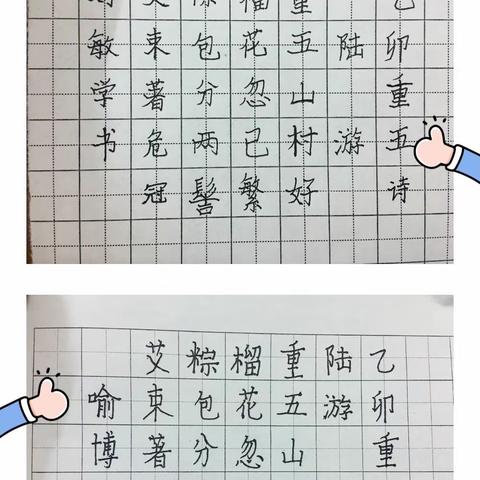 乙卯重五诗
陆游
重五山村好
榴花忽已繁
粽包分两髻
艾束著危冠
敏学书
乙卯重
陆游
重五山
榴花忽
粽包分
艾束著
喻博